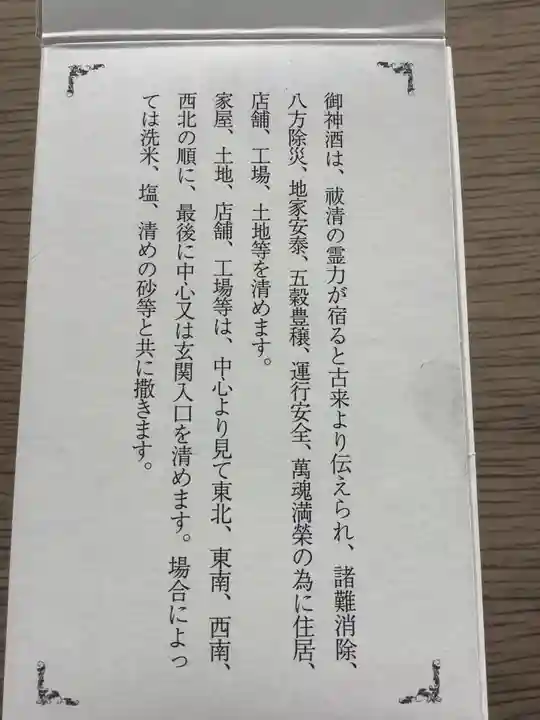 御神酒は、祓清の霊力が宿ると古来より伝えられ、諸難消除、
八方除災、地家安泰、五穀豊穣、運行安全、萬魂満榮の為に住居、
店舗、工場、土地等を清めます。
家屋、土地、店舗、工場等は、中心より見て東北、東南、西南、
西北の順に、最後に中心又は玄関入口を清めます。場合によっ
ては洗米、塩、清めの砂等と共に撒きます。